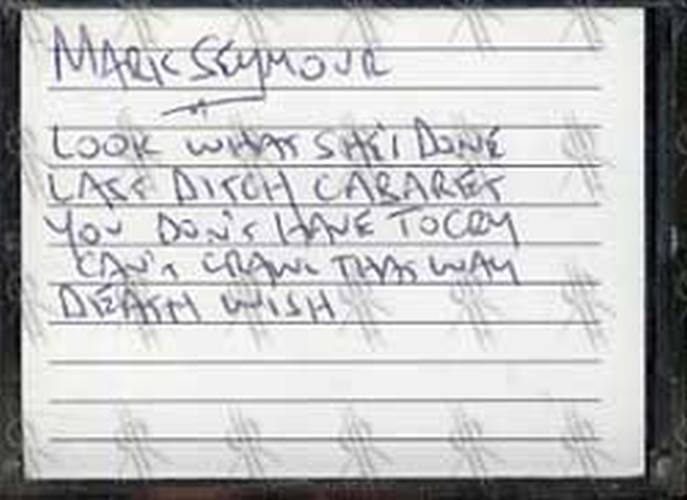 MARK SEYMOUR
LOOK WHAT SHE'S DONE
LAST DITCH CABARET
YOU DON'T HAVE TO CRY
CAN'T CRAWL THAT WAY
DEATH WISH